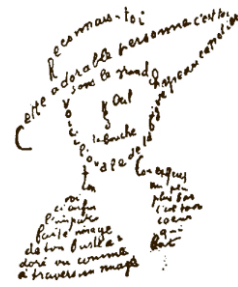 Reconnais-toi
Cette adorable personne c'est toi
Sous le grand chapeau canotier
Œil
Nez
La bouche
Voici l'ovale de ta figure
Ton cou
exquis
Voici enfin
l'imparfaite image
de ton buste a
doré vu comme
à travers un nuage
Un peu
plus bas
c'est ton
coeur
qui
bat